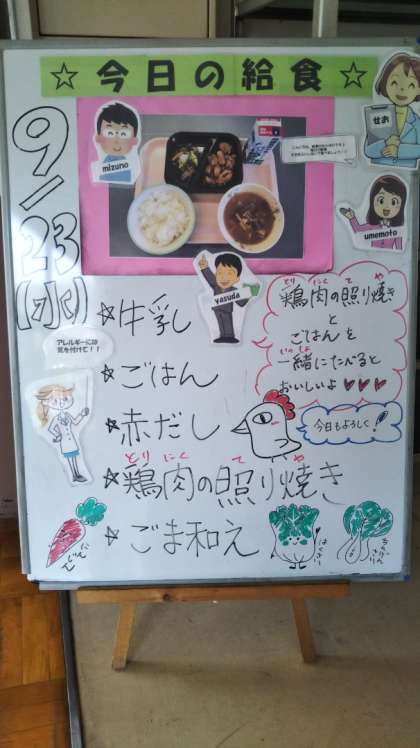 ☆今日の給食☆
9/23
(水)
mizuno
せお
umemoto
yasuda
アレルギーには
気を付けて！！
☆牛乳
☆ごはん
☆赤だし
とりにく て や
☆鶏肉の照り焼き
☆ごま和え
とり にく て や
鶏肉の照り焼き
と
ごはんを
いっしょ
一緒にたべると
おいしいよ♥♥♥
今日もよろしく！
にんじん
はくさい